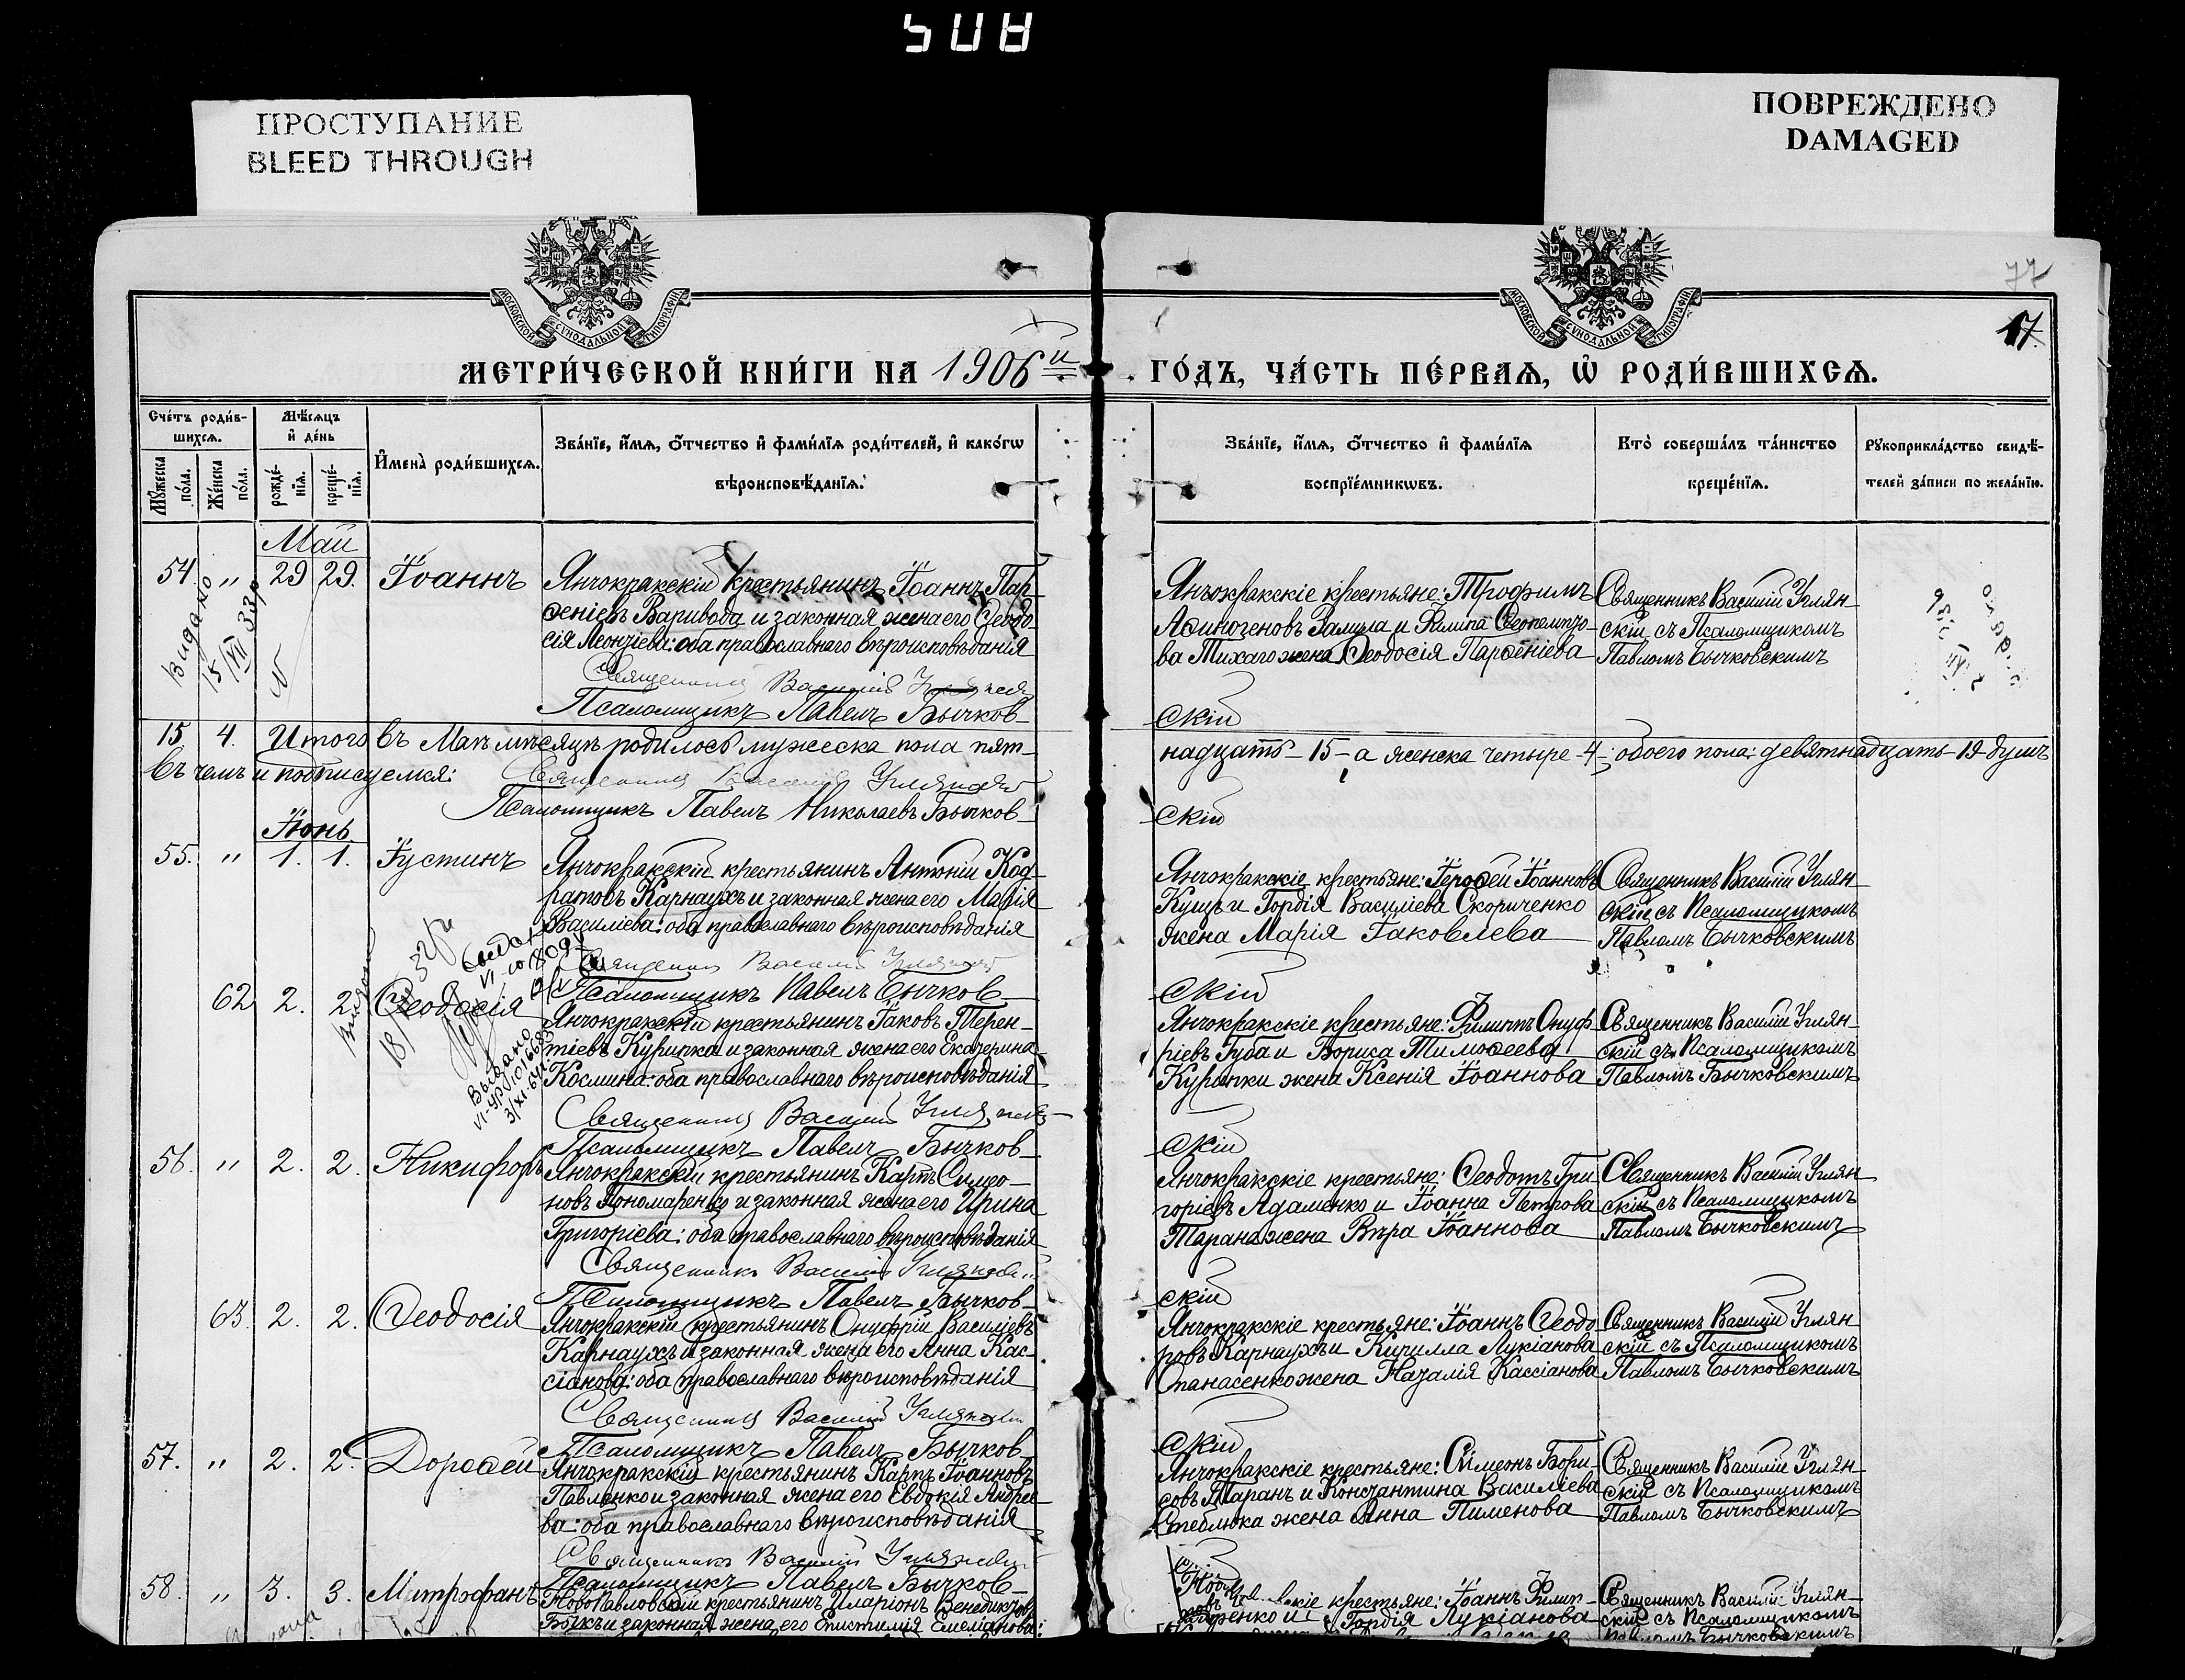 508
ПРОСТУПАНИЕ
BLEED THROUGH
ПОВРЕЖДЕНО
DAMAGED
МОСКОВСКОЙ СУНОДАЛЬНОЙ ТИПОГРАФІИ
МОСКОВСКОЙ СУНОДАЛЬНОЙ ТИПОГРАФІИ
77
17.
МЕТРИ́ЧЕСКОЙ КНИ́ГИ НА 1906й
ГО́ДЪ, ЧА́СТЬ ПЕ́РВАѦ, Ѡ҆ РОДИ́ВШИХСѦ.
Сче́тъ роди́в-
шихсѧ.
Мꙋ́жеска по́ла.
Же́нска по́ла.
Мѣ́сѧцъ
и҆ де́нь
рожде́-нїѧ.
креще́-нїѧ.
И҆мена̀ роди́вшихсѧ.
Зва́нїе, и҆́мѧ, ѻ҆́тчество и҆ фами́лїѧ роди́телей, и҆ како́гѡ
вѣроисповѣ́данїѧ.
Зва́нїе, и҆́мѧ, ѻ҆́тчество и҆ фами́лїѧ
воспрїе́мникѡвъ.
Кто̀ соверша́лъ та́инство
креще́нїѧ.
Рꙋкоприкла́дство свидѣ́-
телей за́писи по жела́нїю.
Май
54. " 29 29. Іоаннъ
Янчокракскій крестьянинъ Іоаннъ Пар-
ѳеніевъ Варивода и законная жена его Ѳеодо-
сія Леонтіева: оба православнаго вѣроисповѣданія
Священникъ Василій Углян-
Псаломщикъ Павелъ Бычков-
Янчокракскіе крестьяне: Трофимъ
ва Тихаго жена Ѳеодосія Парѳеніева
скій
Священникъ Василій Углян-
скій съ Псаломщикомъ
Павломъ Бычковскимъ
Видано
15/VII 33р
15 4. Итого въ Маѣ мѣсяцѣ родилось мужеска пола пят-
надцать - 15 - а женска четыре - 4 -: обоего пола: девятнадцать - 19 - душъ
въ чемъ и подписуемся: Священникъ Василій Углян-
Псаломщикъ Павелъ Николаевъ Бычков-
скій
Іюнь
55. " 1. 1. Іустинъ
Янчокракскій крестьянинъ Антоній Код-
ратовъ Карнаухъ и законная жена его Марія
Василіева: оба православнаго вѣроисповѣданія
Священникъ Василій Углянскій
Псаломщикъ Павелъ Бычков-
Янчокракскіе крестьяне: Іероѳей Іоанновъ
Кущъ и Гордія Василіева Скориченко
жена Марія Іаковлева
скій
Священникъ Василій Углян-
скій съ Псаломщикомъ
Павломъ Бычковскимъ
62 2. 2. Ѳеодосія
Янчокракскій крестьянинъ Іаковъ Терен-
тіевъ Курипка и законная жена его Екатерина
Космина: оба православнаго вѣроисповѣданія
Священникъ Василій Углян-
Псаломщикъ Павелъ Бычков-
Янчокракскіе крестьяне: Филиппъ Онуф-
ріевъ Губа и Бориса Тимоѳеева
Курипки жена Ксенія Іоаннова
скій
Священникъ Василій Углян-
скій съ Псаломщикомъ
Павломъ Бычковскимъ
Выдано
56. " 2. 2. Никифоръ
Янчокракскій крестьянинъ Карпъ Симео-
новъ Пономаренко и законная жена его Ирина
Григоріева: оба православнаго вѣроисповѣданія
Священникъ Василій Углян-
Псаломщикъ Павелъ Бычков-
Янчокракскіе крестьяне: Ѳеодотъ Гри-
горіевъ Адаменко и Іоанна Петрова
Тарана жена Вѣра Іоаннова
скій
Священникъ Василій Углян-
скій съ Псаломщикомъ
Павломъ Бычковскимъ
63. 2. 2. Ѳеодосія
Янчокракскій крестьянинъ Онуфрій Василіевъ
Карнаухъ и законная жена его Анна Кас-
сіанова: оба православнаго вѣроисповѣданія
Священникъ Василій Углян-
Псаломщикъ Павелъ Бычков-
Янчокракскіе крестьяне: Іоаннъ Ѳеодо-
ровъ Карнаухъ и Кирилла Лукіанова
Опанасенко жена Наталія Кассіанова
скій
Священникъ Василій Углян-
скій съ Псаломщикомъ
Павломъ Бычковскимъ
57. " 2. 2. Дороѳей
Янчокракскій крестьянинъ Карпъ Іоанновъ
Павленко и законная жена его Евдокія Андрее-
ва: оба православнаго вѣроисповѣданія
Священникъ Василій Углян-
Псаломщикъ Павелъ Бычков-
Янчокракскіе крестьяне: Симеонъ Бори-
совъ Таранъ и Константина Василіева
Стеблюка жена Анна Пименова
Священникъ Василій Углян-
скій съ Псаломщикомъ
Павломъ Бычковскимъ
58. " 3. 3. Митрофанъ
Новопавловскій крестьянинъ Иларіонъ Венедиктовъ
Быкъ и законная жена его Епистимія Емеліанова:
крестьяне: Іоаннъ Филип-
Гордія Лукіанова
Священникъ Василій Углян-
скій съ Псаломщикомъ
Павломъ Бычковскимъ